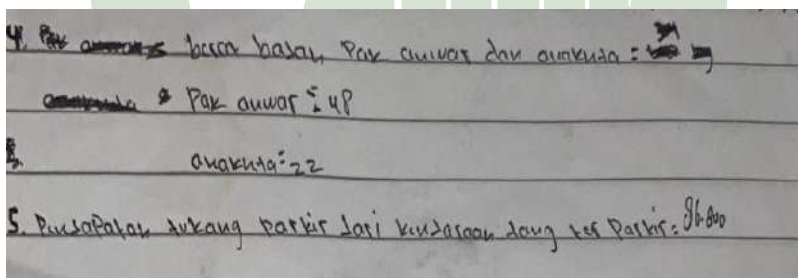 4. Pak basa basan Pak anwar dan anaknda =
Pak anwar = 48
anaknda = 22
5. Pendapatan tukang parkir dari kendaraan yang ter Parkir = 96.000